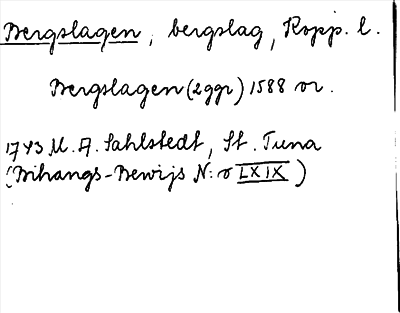 Bergslagen, bergslag, Kopp. l.
Bergslagen (2ggr) 1588 or.
1743 M. A. Sahlstedt, St. Tuna
(Bihangs-Bewijs N:o LXIX)